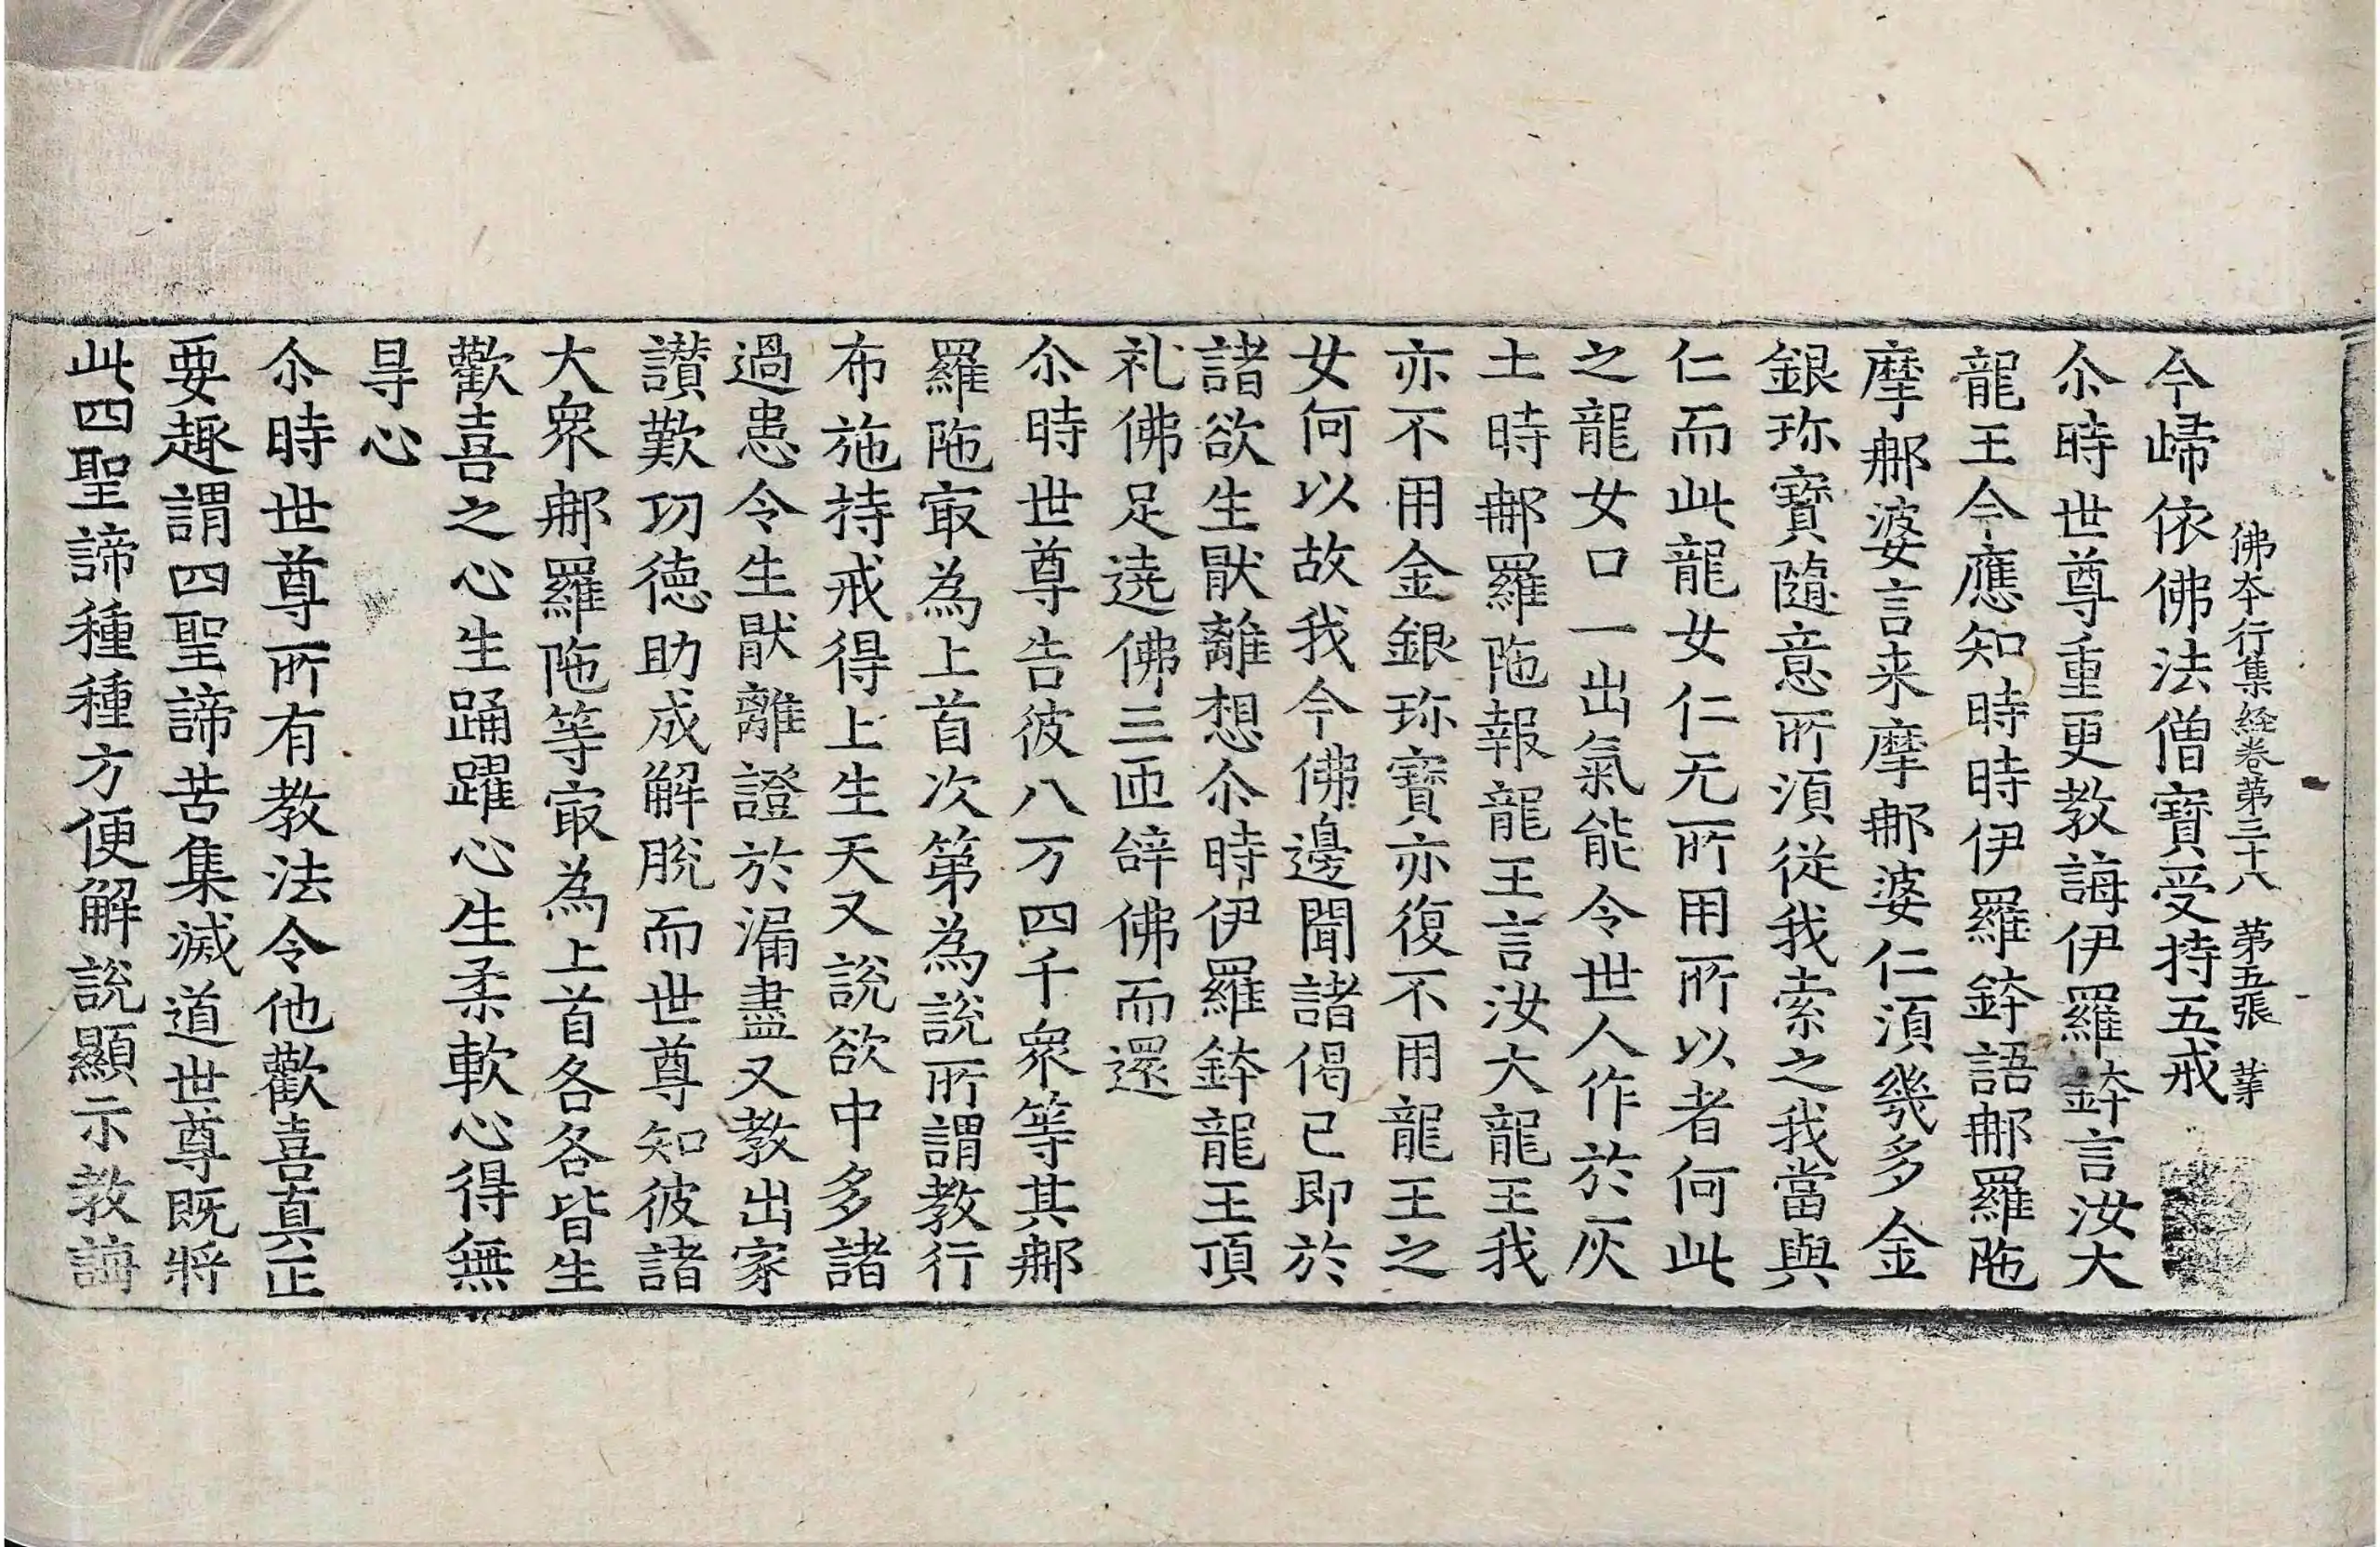 佛本行集経卷第三十八 第五張
今歸依佛法僧寶受持五戒
尒時世尊重更教誨伊羅鉢言汝大
龍王今應知時時伊羅鉢語郍羅陁
摩郍婆言来摩郍婆仁湏幾多金
銀珎寳隨意所湏從我索之我當與
仁而此龍女仁无所用所以者何此
之龍女口一出氣能令世人作於灰
土時郍羅陁報龍王言汝大龍王我
亦不用金銀珎寳亦復不用龍王之
女何以故我今佛邊聞諸偈已即於
諸欲生猒離想尒時伊羅鉢龍王頂
礼佛足遶佛三匝辝佛而還
尒時世尊告彼八万四千衆等其郍
羅陁㝡為上首次第為說所謂教行
布施持戒得上生天又說欲中多諸
過患令生猒離證於漏盡又教出家
讃歎功德助成解脫而世尊知彼諸
大衆郍羅陁等㝡為上首各各皆生
歡喜之心生踊躍心生柔軟心得無
㝵心
尒時世尊所有教法令他歡喜真正
要趣謂四聖諦苦集滅道世尊既將
此四聖諦種種方便解說顯示教誨